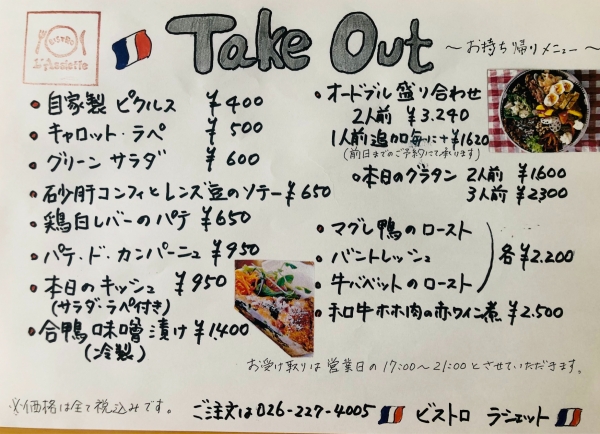 BISTRO
L'Assiette
Take Out
～お持ち帰りメニュー～
・自家製 ピクルス ¥400
・キャロット・ラペ ¥500
・グリーン サラダ ¥600
・砂肝コンフィとレンズ豆のソテー ¥650
・鶏白レバーのパテ ¥650
・パテ・ド・カンパーニュ ¥950
・本日のキッシュ ¥950
(サラダ・ラペ付き)
・合鴨味噌漬け ¥1,400
(冷製)
・オードブル盛り合わせ
2人前 ¥3.240
1人前追加毎に+¥1620
(前日までのご予約にて承ります)
・本日のグラタン 2人前 ¥1.600
3人前 ¥2300
・マグレ鴨のロースト
・バントレッシュ 各¥2.200
・牛バベットのロースト
・和牛ホホ肉の赤ワイン煮 ¥2.500
お受け取りは営業日の17:00～21:00とさせていただきます。
※価格は全て税込みです。
ご注文は026-227-4005 ビストロ ラシェット